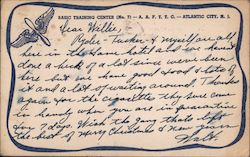 BASIC TRAINING CENTER (No. 7) — A. A. F. T. T. C. — ATLANTIC CITY, N. J.
Dear Willer,
Tucker & myself are all
here in the same hotel and we haven't
done a heck of a lot since we've been
here but we have good food & lots of
it and a lot of waiting around. Thanks
again for the cigarettes they sure came
in handy when you are in quarantine
for 7 days. Wish the gang that's left
the best of Merry Christmas & New Years
Walt.